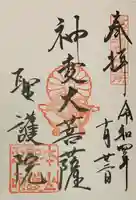 奉拝
令和四年
十月廿二日
神変大菩薩
聖護院